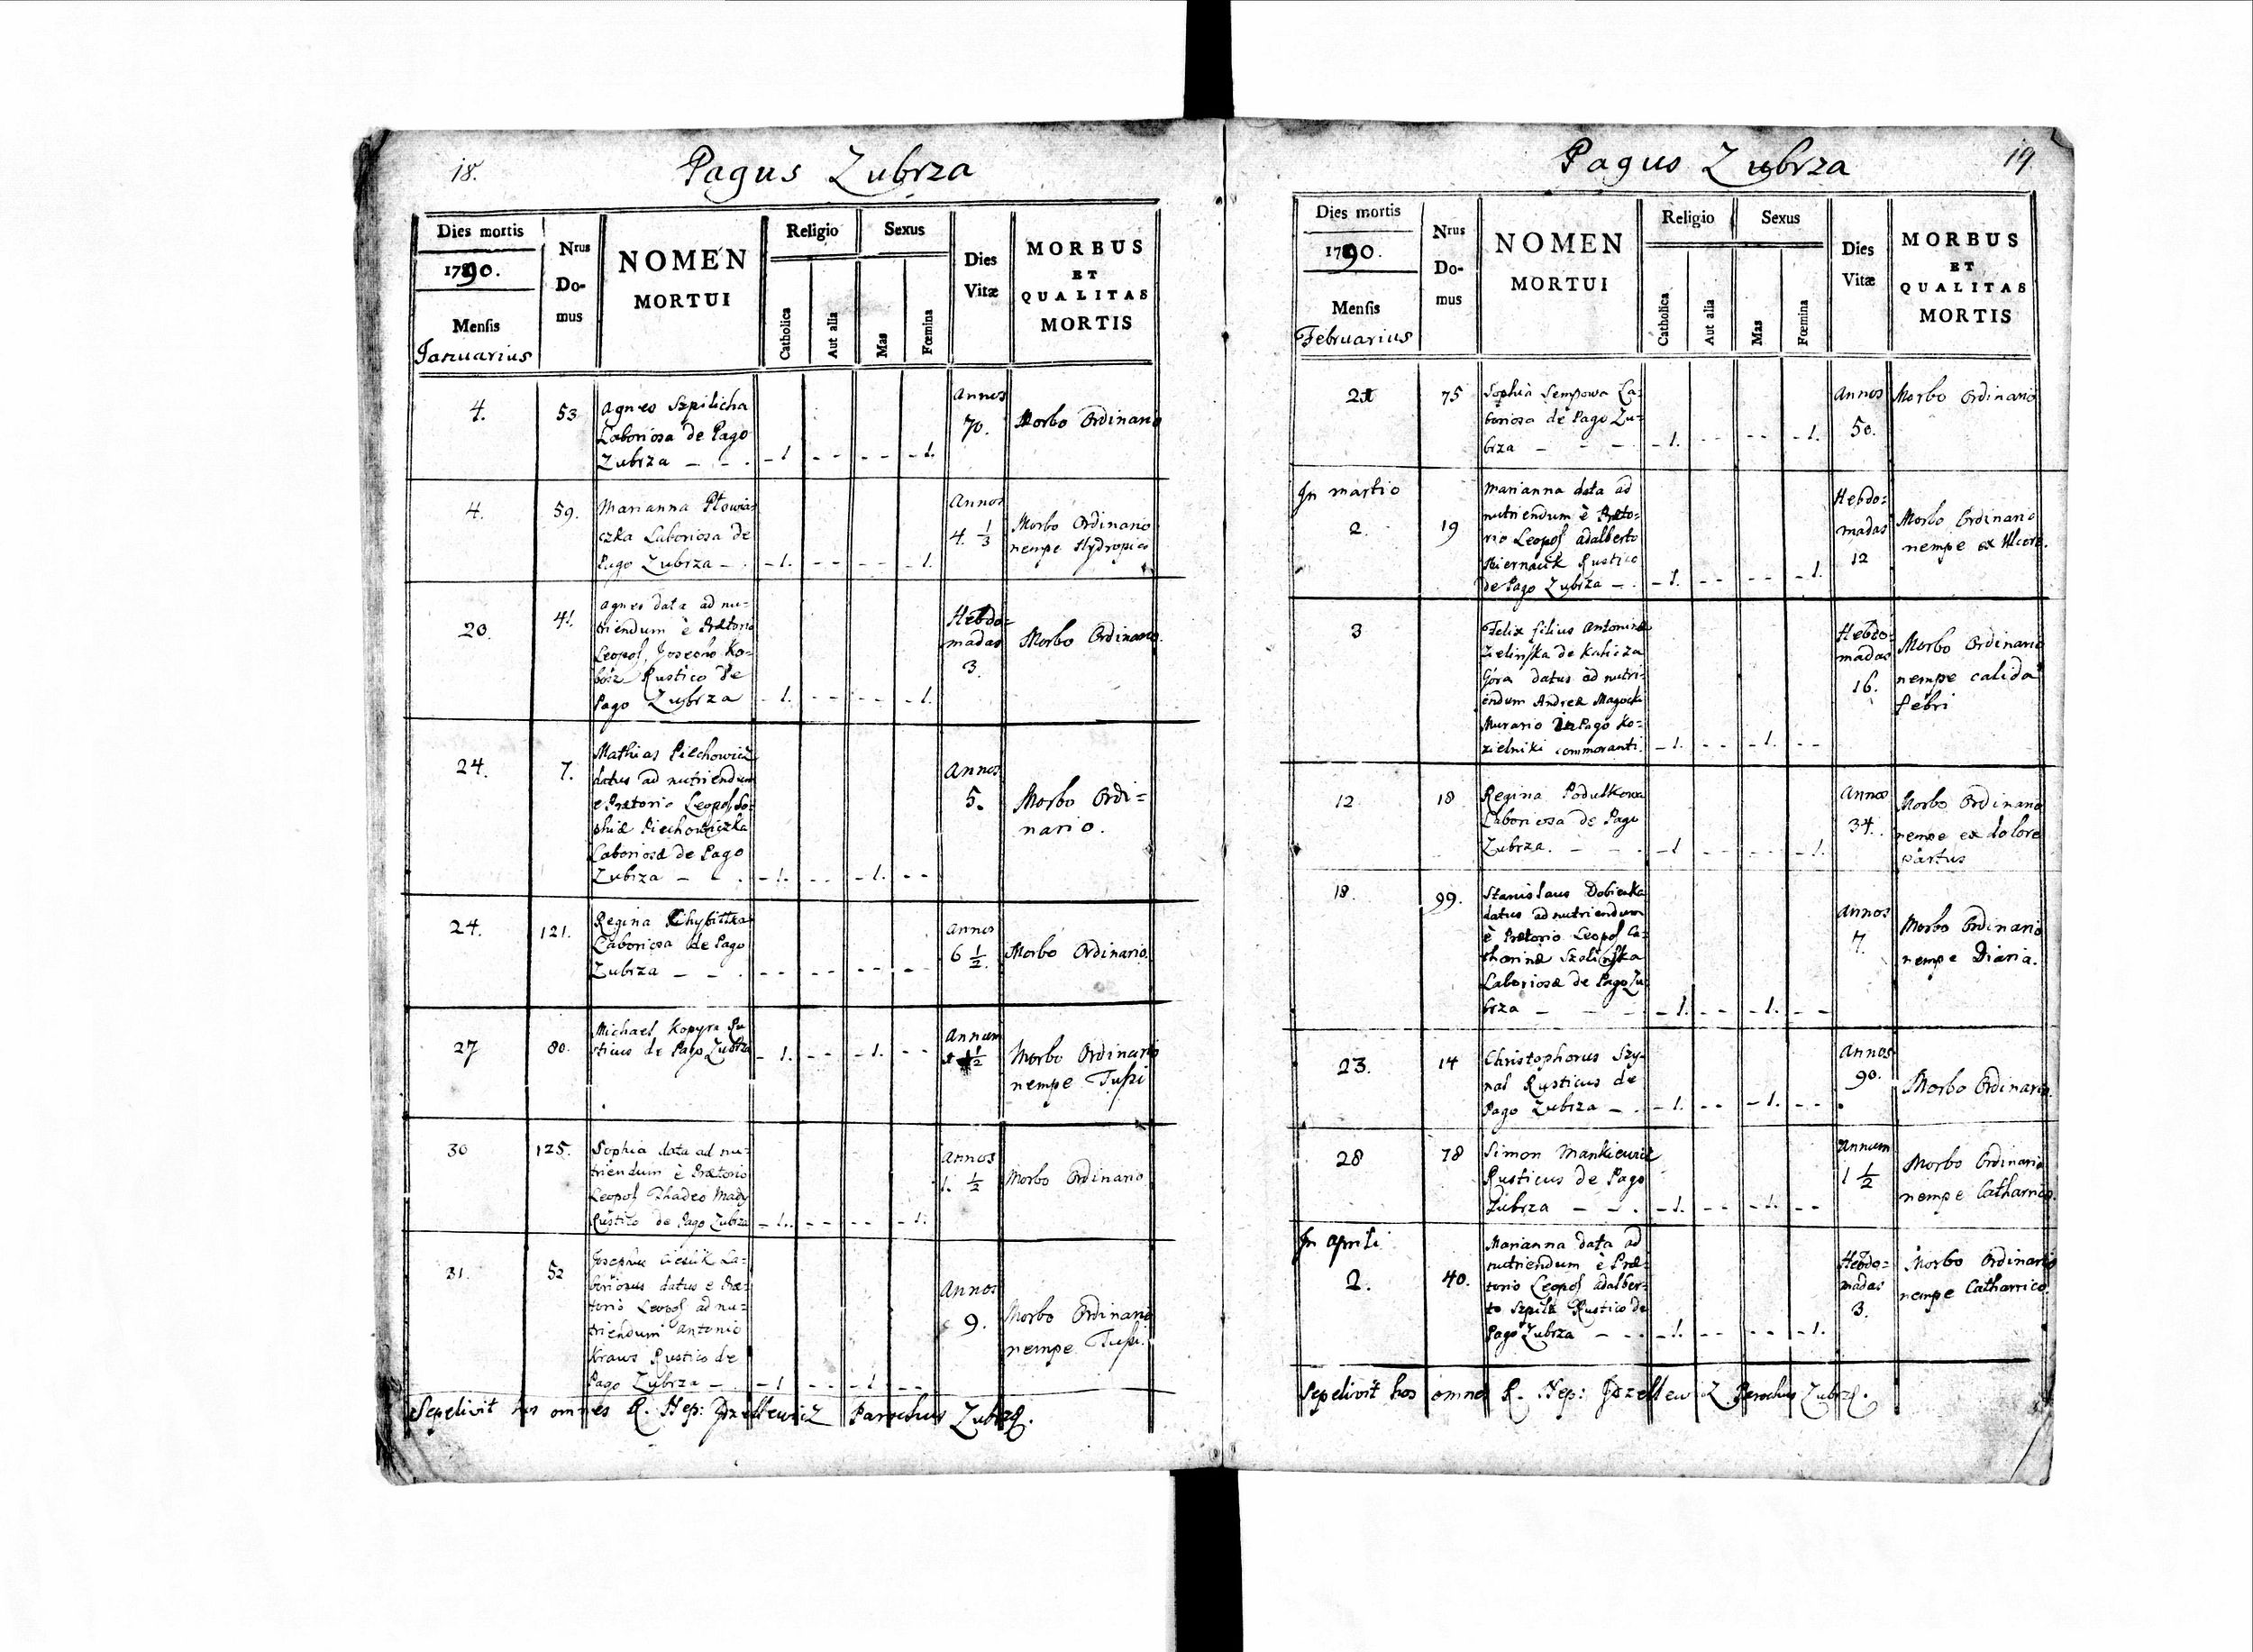 18.
Pagus Zubrza
Dies mortis
1790.
Mensis
Januarius
Nrus
Do-
mus
NOMEN
MORTUI
Religio
Catholica
Aut alia
Sexus
Mas
Fœmina
Dies
Vitæ
MORBUS
ET
QUALITAS
MORTIS
4.
53
Agnes Szpilicha
Laboriosa de Pago
Zubrza – - .
- 1
- -
- -
- 1.
Annos
70.
Morbo Ordinario
4.
59.
Marianna
czka Laboriosa de
Pago Zubrza – .
- 1.
- -
- -
- 1.
Annos
4. 1/3
Morbo Ordinario
nempe Hydropico
20.
41.
Agnes data ad nu-
triendum è Prætorio
Leopol. Josepho Ko-
Rustico de
Pago Zubrza
- 1.
- -
- -
- 1.
Hebdo-
madas
3.
Morbo Ordinario.
24.
7.
Mathias Piechowicz
datus ad nutriendum
e Prætorio Leopol. So-
phiæ Piechowiczka
Laboriosæ de Pago
Zubrza – - .
- 1.
- -
- 1.
- -
Annos
5.
Morbo Ordi=
nario.
24.
121.
Regina Chybiłka
Laboriosa de Pago
Zubrza – – .
- -
- -
- -
- -
Annos
6 1/2.
Morbo Ordinario.
27
80.
Michael Kopyra Ru
sticus de Pago Zubrza
- 1.
- -
- 1.
- -
Annum
1/2
Morbo Ordinario
nempe Tussi
30
125.
Sophia data ad nu-
triendum è Prætorio
Leopol. Thadeo Mady
Rustico de Pago Zubrza
- 1.
- -
- -
- 1.
Annos
1. 1/2
Morbo Ordinario
31.
52
Josephus Cieslik La-
boriosus datus e Præ-
torio Leopol. ad nu-
triendum Antonio
Kraus Rustico de
Pago Zubrza –
- 1
- -
- 1
- -
Annos
9.
Morbo Ordinario
nempe Tussi.
Sepelivit hos omnes R. Nep: Parochus Zubrzæ.
Pagus Zubrza
19
Dies mortis
1790.
Mensis
Februarius
Nrus
Do-
mus
NOMEN
MORTUI
Religio
Catholica
Aut alia
Sexus
Mas
Fœmina
Dies
Vitæ
MORBUS
ET
QUALITAS
MORTIS
75
Sophia Sempowa La-
boriosa de Pago Zu-
brza – - -
- 1.
- -
- -
- 1.
Annos
50.
Morbo Ordinario
In martio
2.
19
Marianna data ad
nutriendum è Præto-
rio Leopol. Adalberto
Biernacik Rustico
de Pago Zubrza – .
- 1.
- -
- -
- 1.
Hebdo-
madas
12
Morbo Ordinario
nempe ex Ulcere.
3
Felix filius Antoninæ
Zielińska de Kulicza
Góra datus ad nutri-
endum Andreæ Magocki
Murario in Pago Ko-
zielniki commoranti.
- 1.
- -
- 1.
- -
Hebdo-
madas
16.
Morbo Ordinario
nempe calida
febri
12.
18
Regina Podulkowa
Laboriosa de Pago
Zubrza. – .
- 1
- -
- -
- 1.
Annos
34.
Morbo Ordinario
nempe ex dolore
partus
18.
99.
Stanislaus Dobienka
datus ad nutriendum
è Prætorio Leopol. Ca-
tharinæ Szolińska
Laboriosæ de Pago Zu
brza – – –
- 1.
- -
- 1.
- -
Annos
7.
Morbo Ordinario
nempe Diaria.
23.
14
Christophorus Szy-
nal Rusticus de
Pago Zubrza – .
- 1.
- -
- 1.
- -
Annos
90.
Morbo Ordinario.
28
78
Simon Mankiewicz
Rusticus de Pago
Zubrza – - .
- 1.
- -
- 1.
- -
Annum
1 1/2
Morbo Ordinario
nempe Catharrico.
In aprili
2.
40.
Marianna data ad
nutriendum è Præ-
torio Leopol. Adalber-
to Szpila Rustico de
Pago Zubrza – - .
- 1.
- -
- -
- 1.
Hebdo=
madas
3.
Morbo Ordinario
nempe Catharrico.
Sepelivit hos omnes R. Nep: Parochus Zubrzæ.